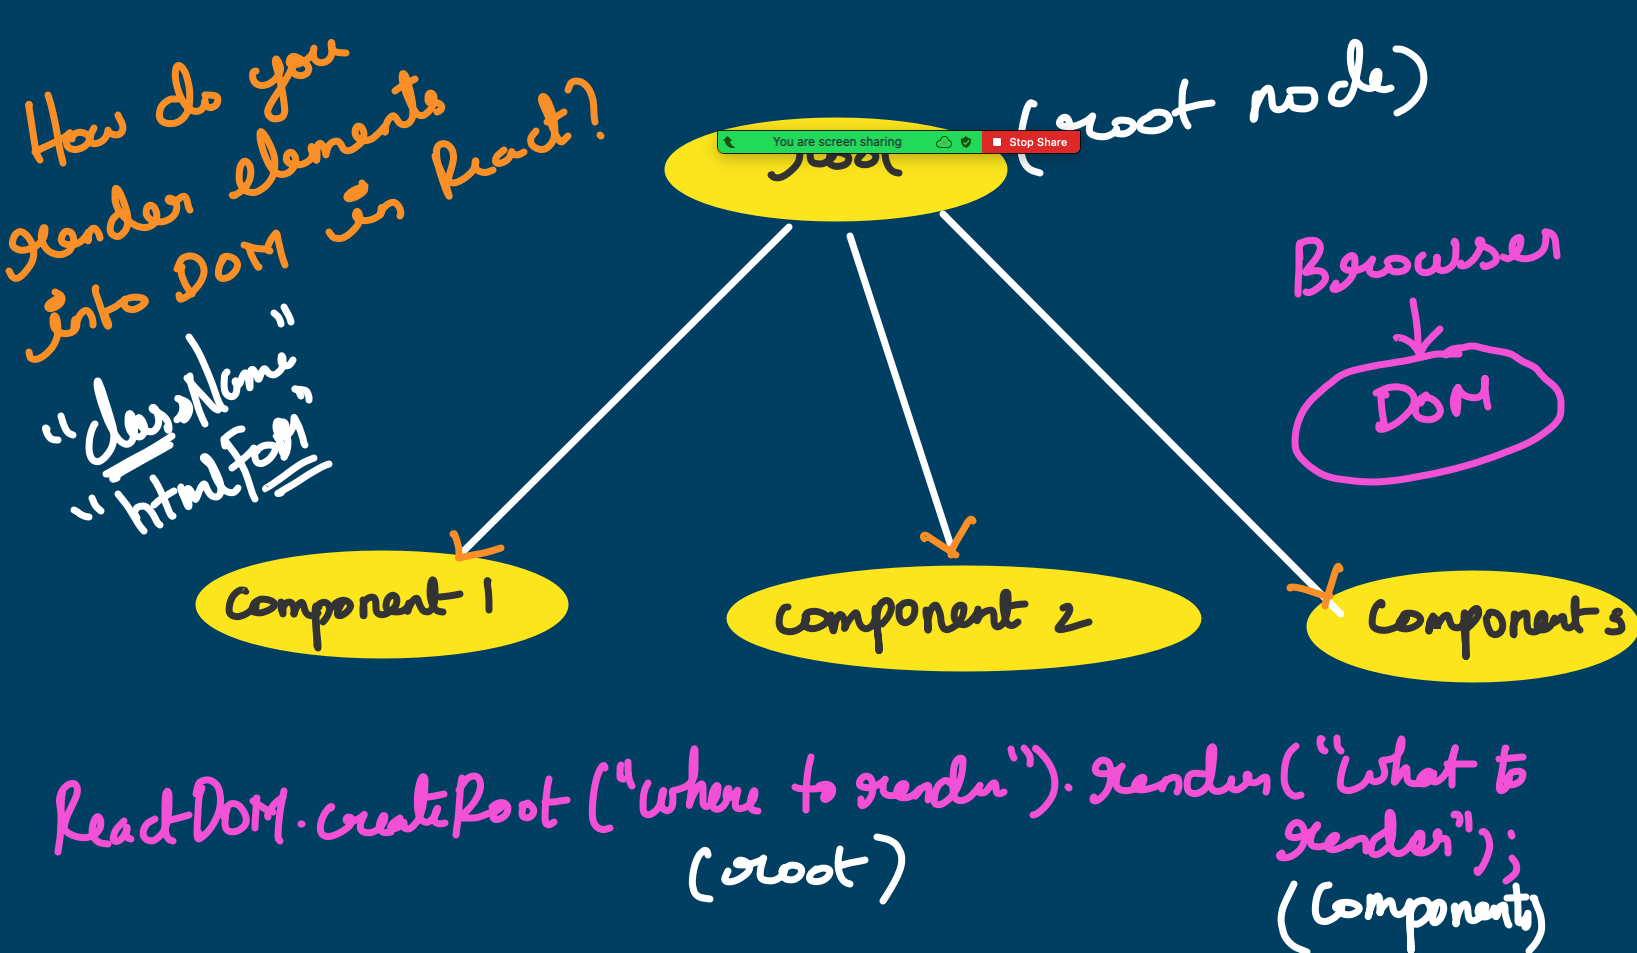 How do you
render elements
into DOM in React?
"className"
"htmlFor"
(root node)
You are screen sharing
Stop Share
root
Browser
DOM
Component 1
Component 2
Component 3
ReactDOM.createRoot ("where to render").render("what to
render");
(root)
(Component)